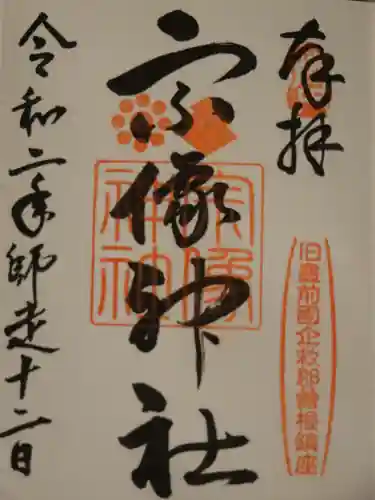 奉拝
旧豊前國企救郡曽根鎮座
宗像神社
宗像
神社
令和二年師走十二日